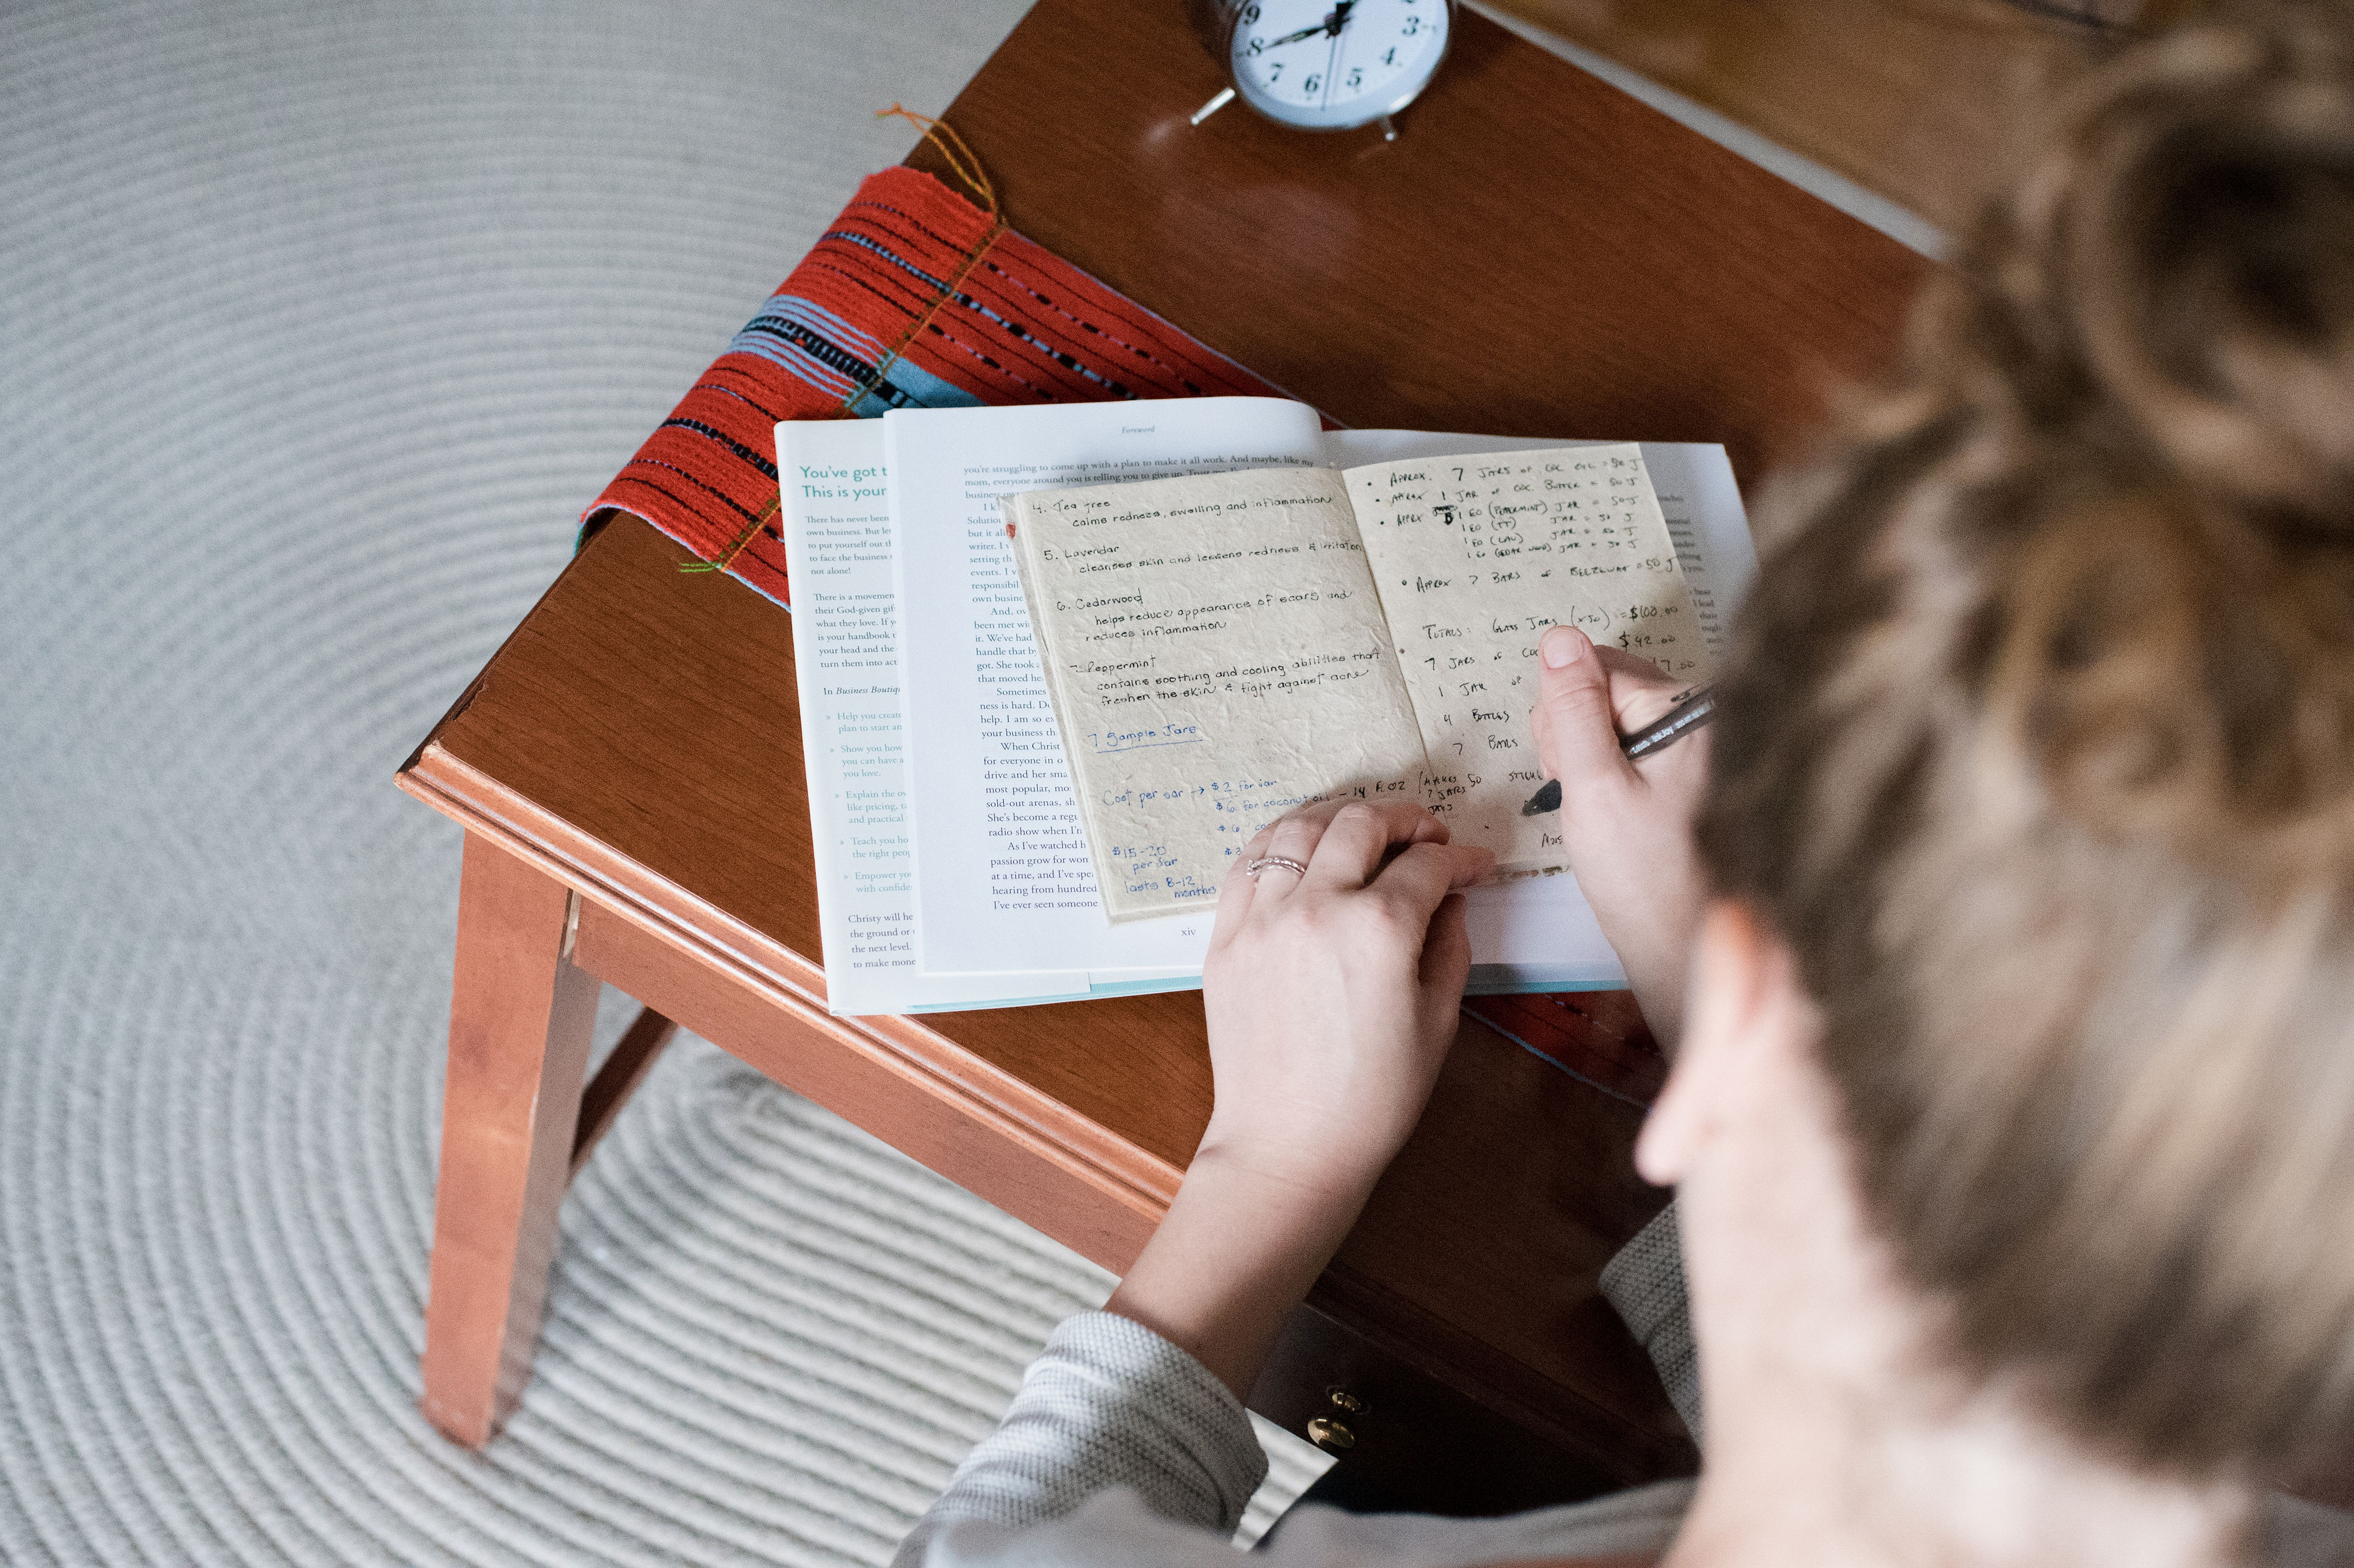 9
8
7
6
5
4
3
You've got t
This is your
There has never been
own business. But le
to put yourself out th
to face the business
not alone!
There is a movemen
their God-given gif
what they love. If y
is your handbook t
your head and the
turn them into act
In Business Boutiq
» Help you create
plan to start an
» Show you how
you can have a
you love.
» Explain the ov
like pricing, ta
and practical
» Teach you ho
the right peop
» Empower yo
with confide
Christy will he
the ground or
the next level.
to make mone
Foreword
you're struggling to come up with a plan to make it all work. And maybe, like my
mom, everyone around you is telling you to give up. Trust me,
business
I k
Solution
but it all
writer. I
setting th
events. I v
responsibil
own busine
And, ov
been met wi
it. We've had
handle that b
got. She took a
that moved he
Sometimes
ness is hard. Do
help. I am so ex
your business th
When Christ
for everyone in o
drive and her sma
most popular, mo
sold-out arenas, sh
She's become a regu
radio show when I'm
As I've watched h
passion grow for won
at a time, and I've spe
hearing from hundred
I've ever seen someone
xiv
4. Tea Tree
calms redness, swelling and inflammation
5. Lavendar
cleanses skin and lessens redness & irritation
6. Cedarwood
helps reduce appearance of scars and
reduces inflammation
7. Peppermint
contains soothing and cooling abilities that
freshen the skin & fight against acne
7 Sample Jars
Cost per jar → $2 for jar
$6 for coconut oil - 14 fl oz (makes 50
7 jars
$6 coc
$3
$15-20
per jar
lasts 8-12
months
• APPROX. 7 JARS OF COC OIL = 50 J
• APPROX 1 JAR OF COC. BUTTER = 50 J
• APPRX 1 EO (PEPPERMINT) JAR = 50 J
1 EO (TT) JAR = 50 J
1 EO (LAV) JAR = 50 J
1 EO (CEDAR WOOD) JAR = 50 J
• APPROX 7 BARS OF BEEZWAX = 50 J
TOTALS: GLASS JARS (x50) = $100.00
7 JARS OF COC $42.00
1 JAR OF 7.00
4 BOTTLES
7 BARS